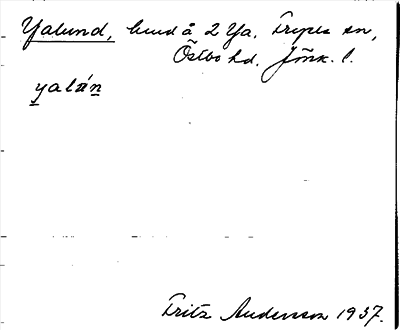 Yalund, lund å 2 Ya. Trypes sn,
Östbo hd. Jönk. l.
yalún
Fritz Andersson 1937.